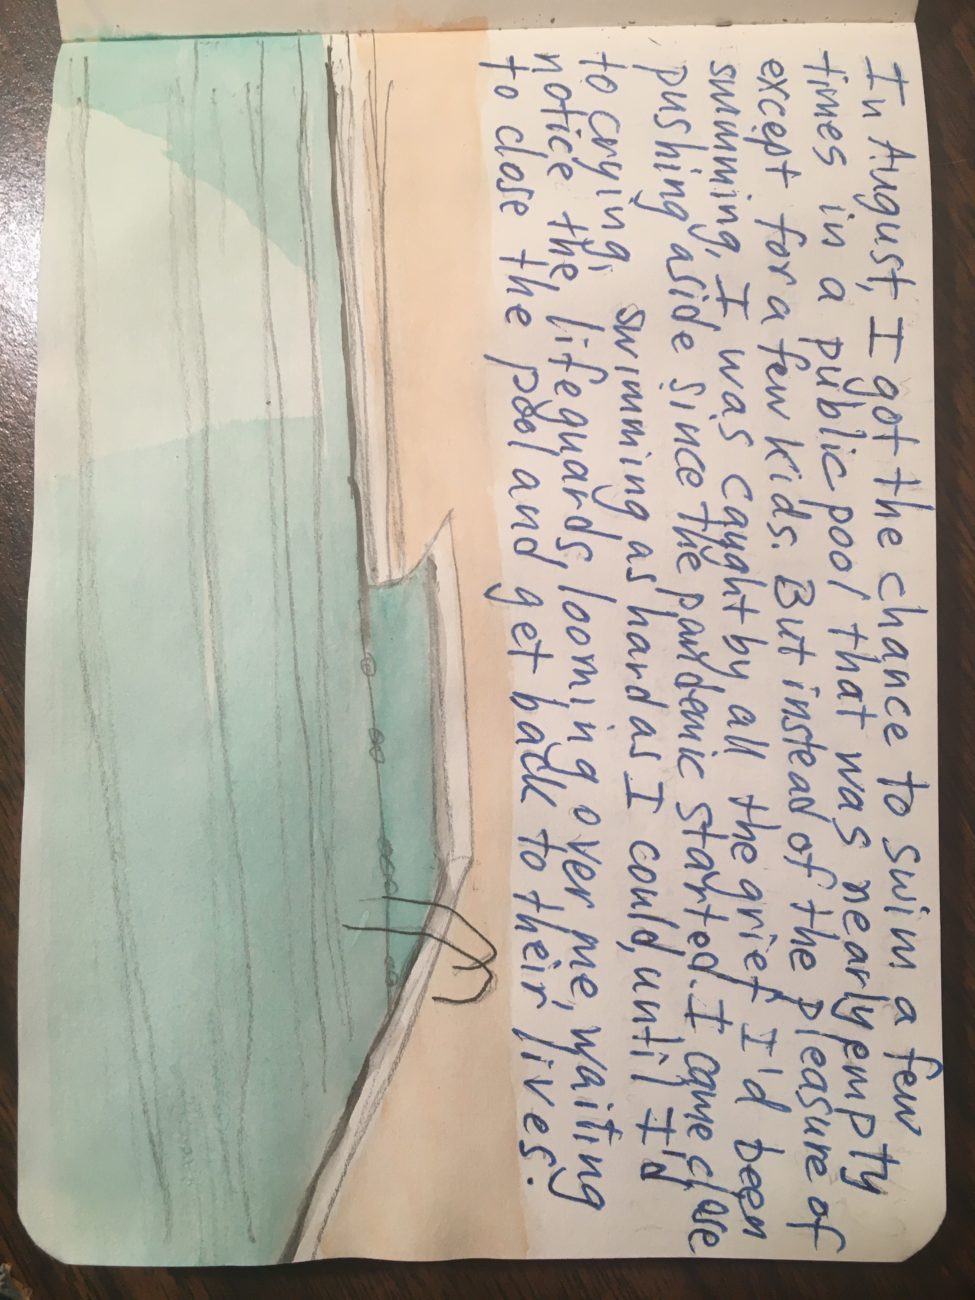 In August, I got the chance to swim a few
times in a public pool that was nearly empty
except for a few kids. But instead of the pleasure of
summing, I was caught by all the grief I'd been
pushing aside since the pandemic started. I came close
to crying, swimming as hard as I could, until I'd
notice the lifeguards, looming over me, waiting
to close the pool and get back to their lives.